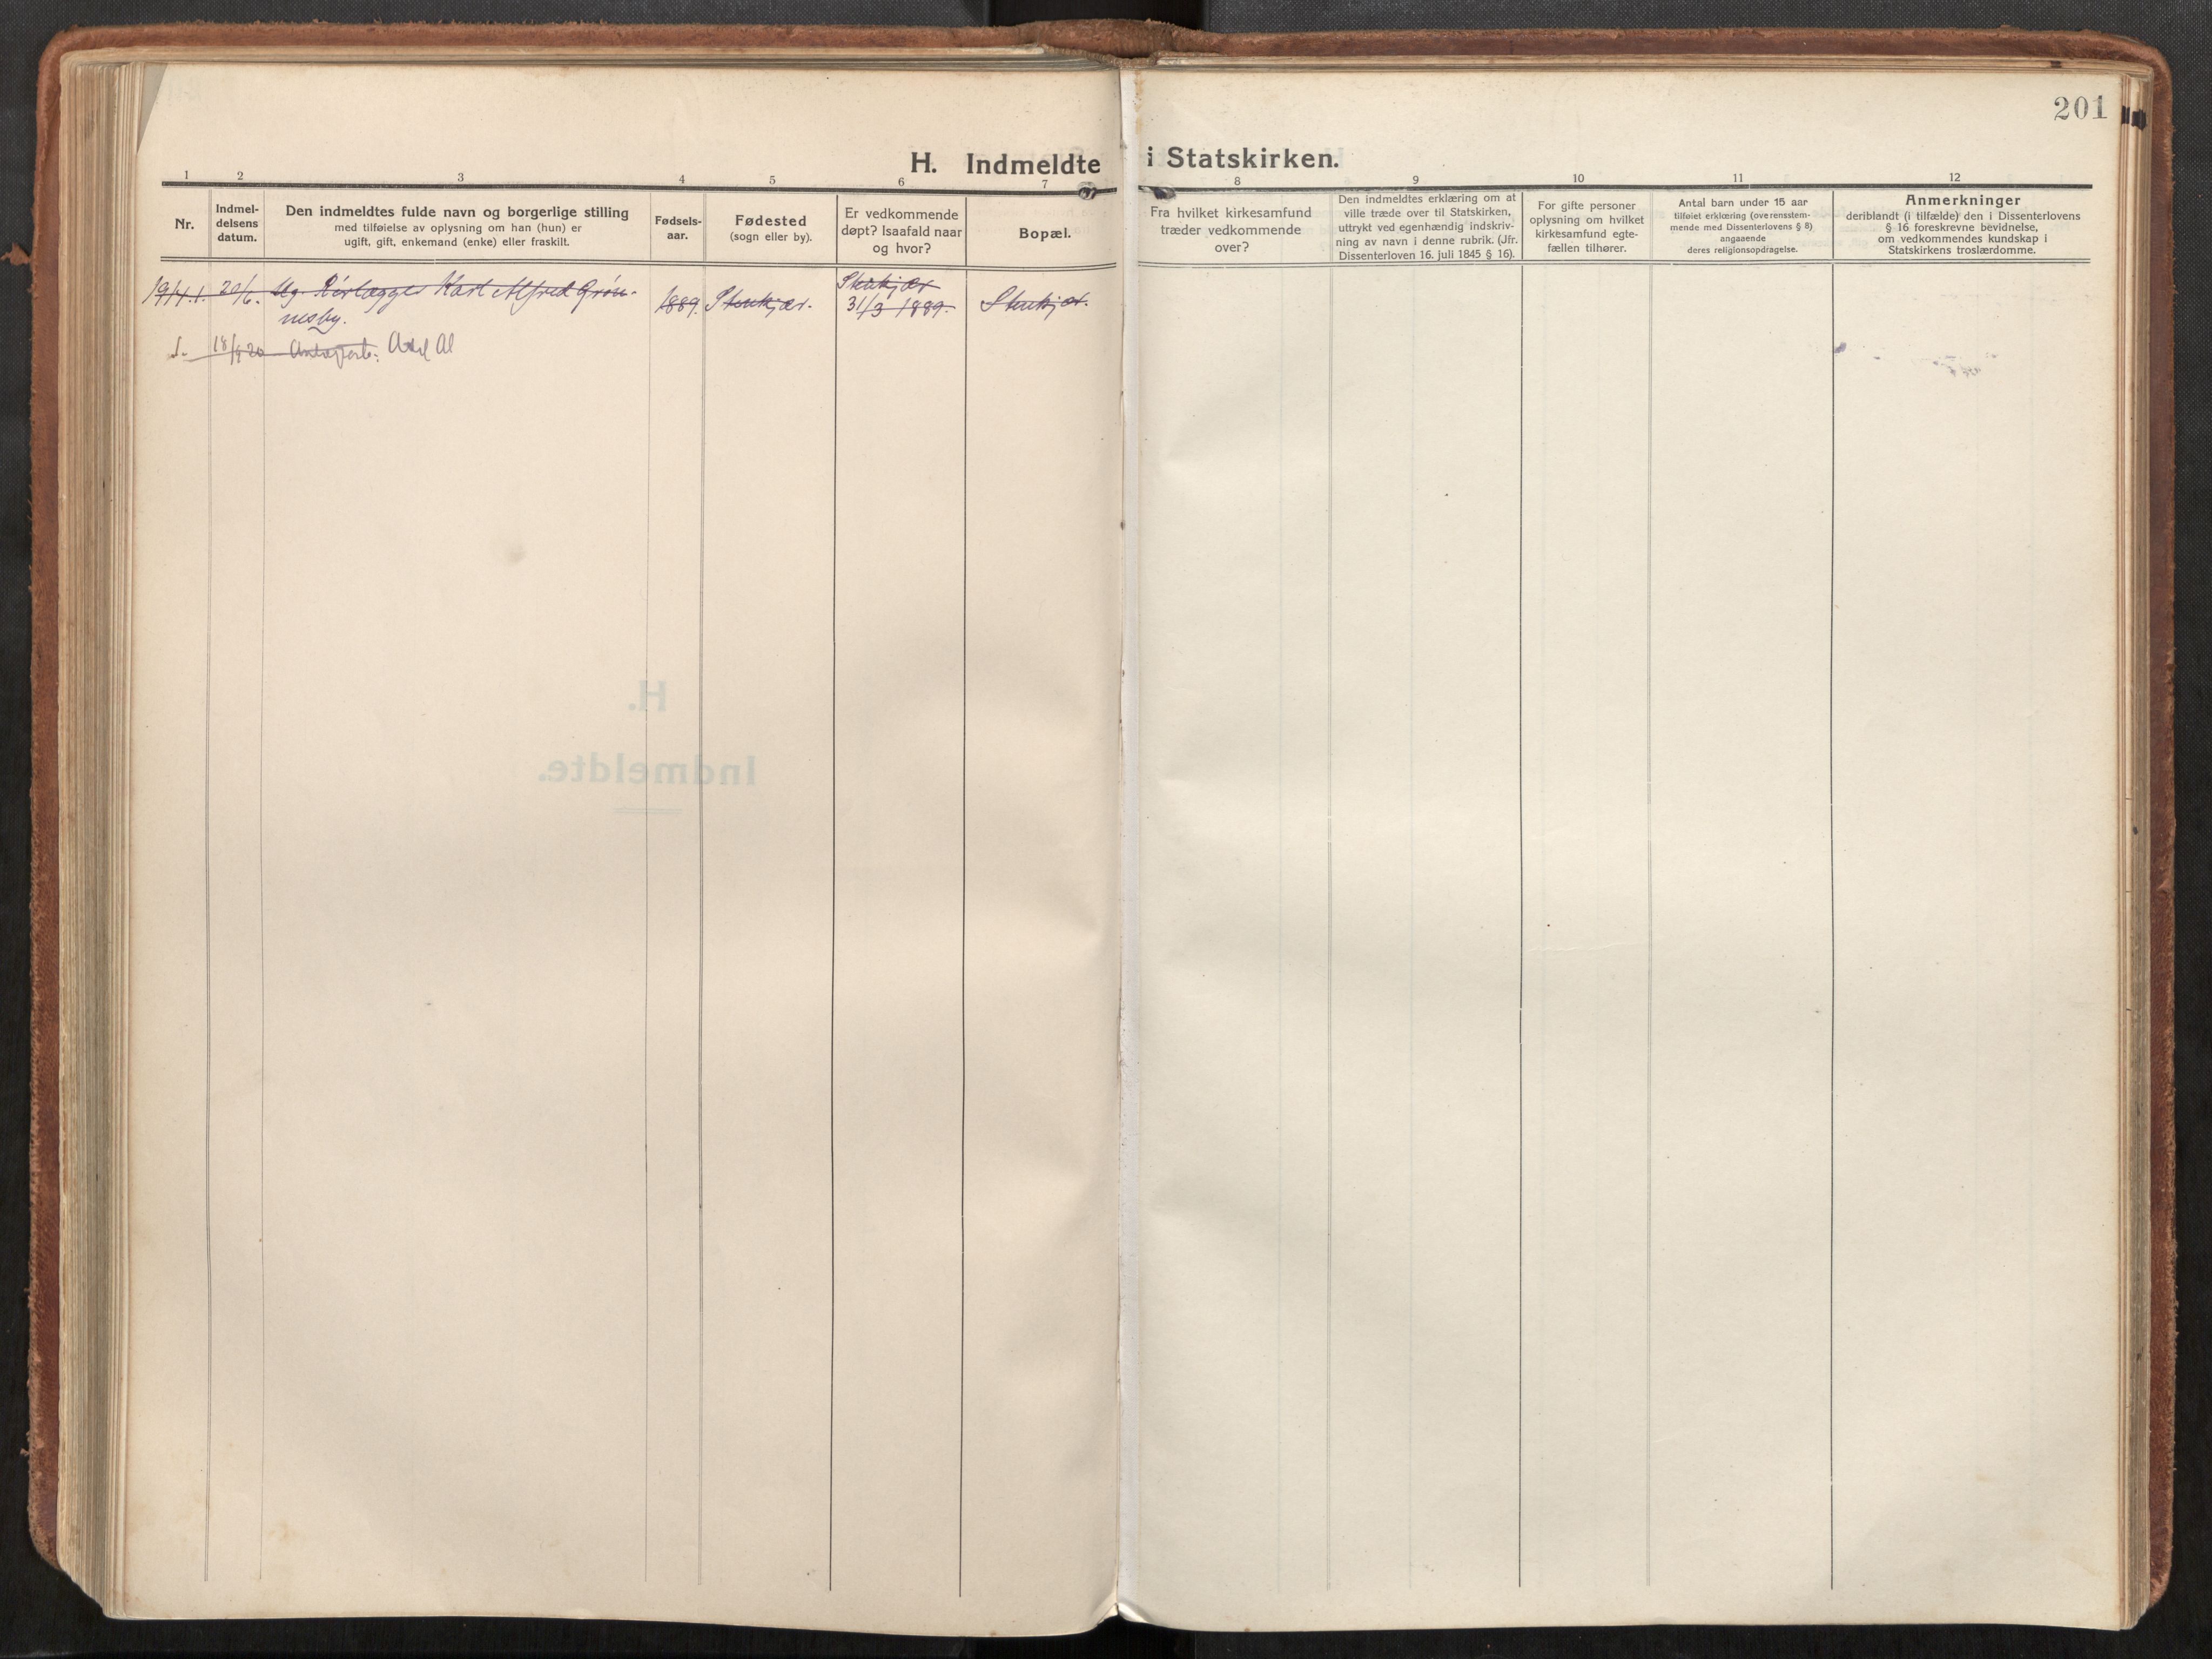 201
H. Indmeldte i Statskirken.
1 2 3 4 5 6 7 8 9 10 11 12
Nr.
Indmel-
delsens
datum.
Den indmeldtes fulde navn og borgerlige stilling
med tilføielse av oplysning om han (hun) er
ugift, gift, enkemand (enke) eller fraskilt.
Fødsels-
aar.
Fødested
(sogn eller by).
Er vedkommende
døpt? Isaafald naar
og hvor?
Bopæl.
Fra hvilket kirkesamfund
træder vedkommende
over?
Den indmeldtes erklæring om at
ville træde over til Statskirken,
uttrykt ved egenhændig indskriv-
ning av navn i denne rubrik. (Jfr.
Dissenterloven 16. juli 1845 § 16).
For gifte personer
oplysning om hvilket
kirkesamfund egte-
fællen tilhører.
Antal barn under 15 aar
tilføiet erklæring (overensstem-
mende med Dissenterlovens § 8)
angaaende
deres religionsopdragelse.
Anmerkninger
deriblandt (i tilfælde) den i Dissenterlovens
§ 16 foreskrevne bevidnelse,
om vedkommendes kundskap i
Statskirkens troslærdomme.
20/6. Ug. Rørlægger Karl Alfred Grøn-
nesby.
1889. Stenkjær.
Stenkjær
31/3 1889.
Stenkjær.
18/9 20
H.
Indmeldte.